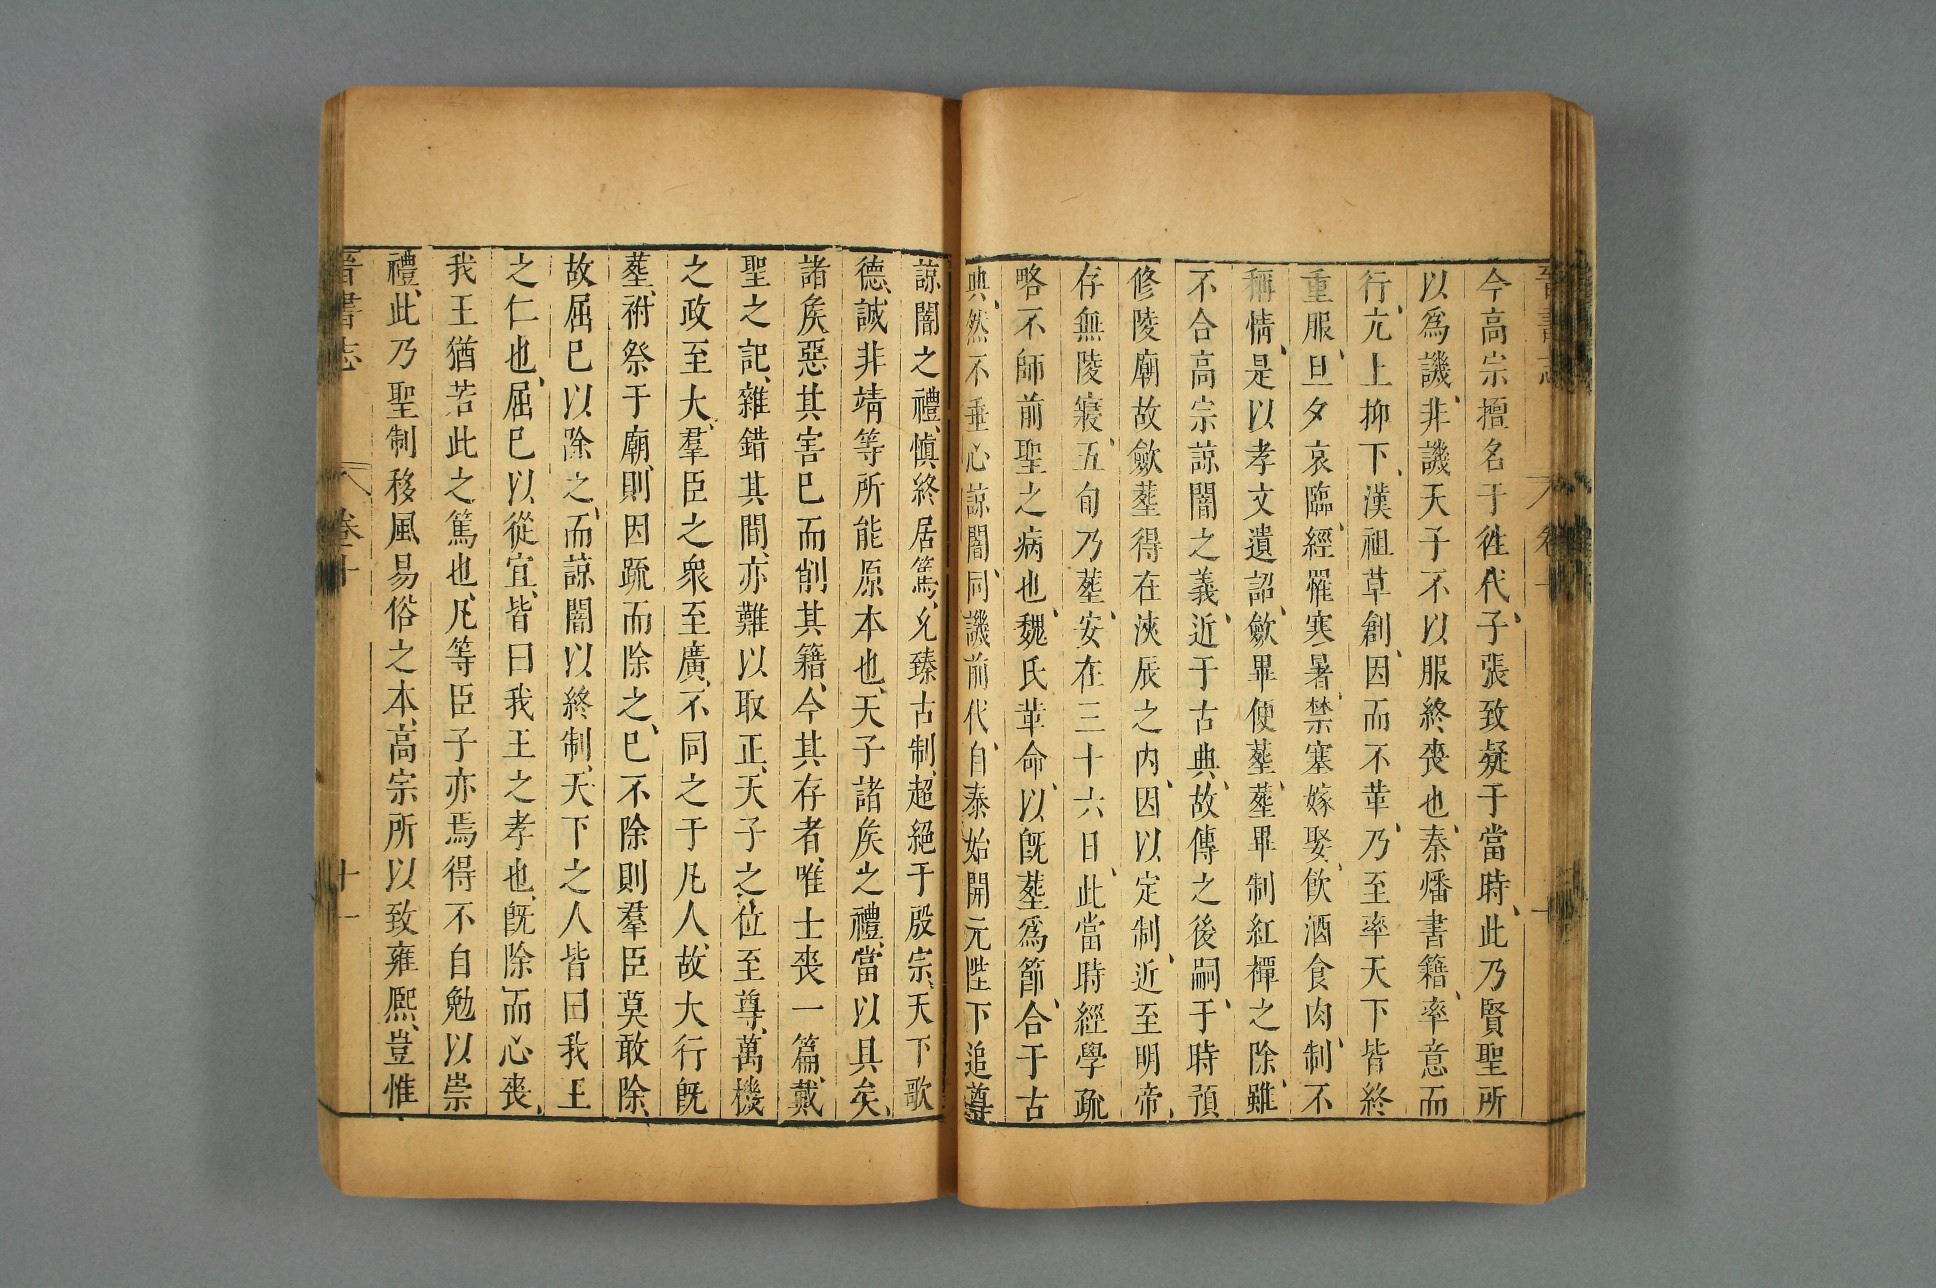 今高宗擅名于徃代、子張致疑于當時、此乃賢聖所
以爲譏、非譏天子不以服終喪也、秦燔書籍、率意而
行、亢上抑下、漢祖草創、因而不革、乃至率天下皆終
重服、旦夕哀臨、經罹寒暑、禁塞嫁娶、飮酒食肉、制不
稱情、是以孝文遺詔、斂畢便葬、葬畢制紅禫之除、雖
不合高宗諒闇之義、近于古典、故傳之後嗣、于時預
修陵廟故斂葬得在浹辰之内、因以定制、近至明帝、
存無陵寢、五旬乃葬、安在三十六日、此當時經學疏
略不師前聖之病也、魏氏革命、以旣葬爲節、合于古
典、然不垂心諒闇、同譏前代、自泰始開元陛下追尊
諒闇之禮、愼終居篤、允臻古制、超絕于殷宗、天下歌
德、誠非靖等所能原本也、天子諸矦之禮、當以具矣、
諸矦惡其害已而削其籍、今其存者、唯士喪一篇、戴
聖之記、雜錯其間、亦難以取正、天子之位至尊、萬機
之政至大、羣臣之衆至廣、不同之于凡人、故大行旣
葬、祔祭于廟、則因疏而除之、已不除則羣臣莫敢除、
故屈已以除之、而諒闇以終制、天下之人皆曰我王
之仁也、屈已以從宜、皆曰我王之孝也、旣除而心喪、
我王猶若此之篤也、凡等臣子亦焉得不自勉以崇
禮、此乃聖制移風易俗之本、高宗所以致雍熙、豈惟
晉書志 卷二十 十一